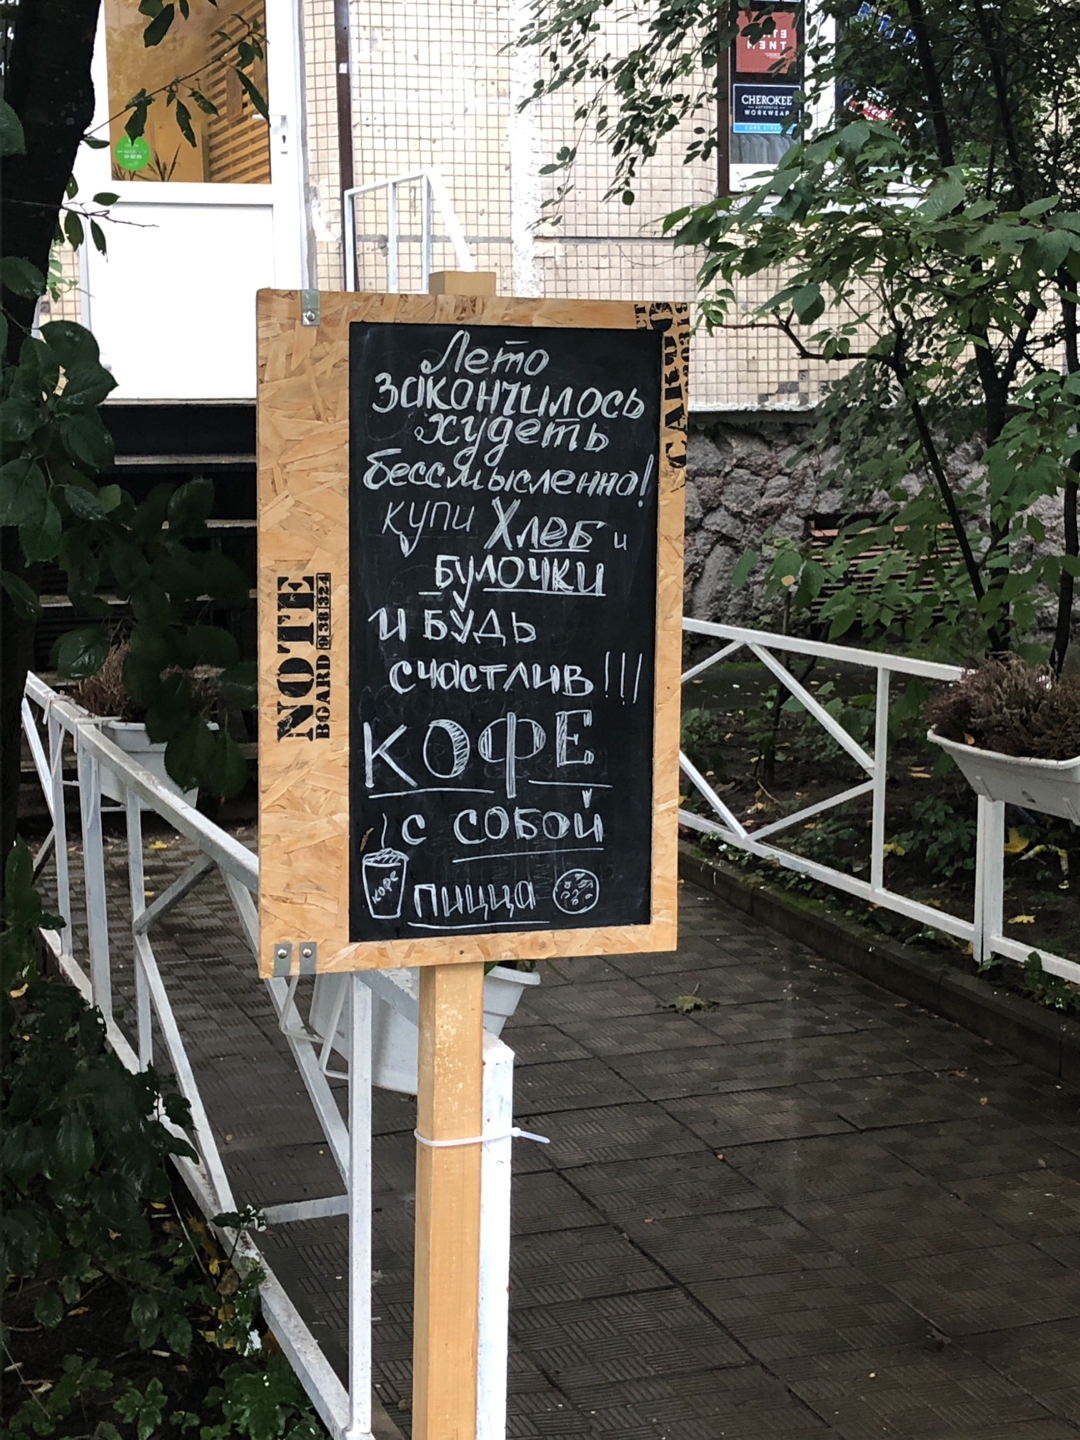 CHEROKEE
AUTHENTIC
WORKWEAR
Лето
закончилось
худеть
бессмысленно!
купи Хлеб и
булочки
и будь
счастлив!!!
КОФЕ
с собой
кофе
пицца
NOTE
BOARD